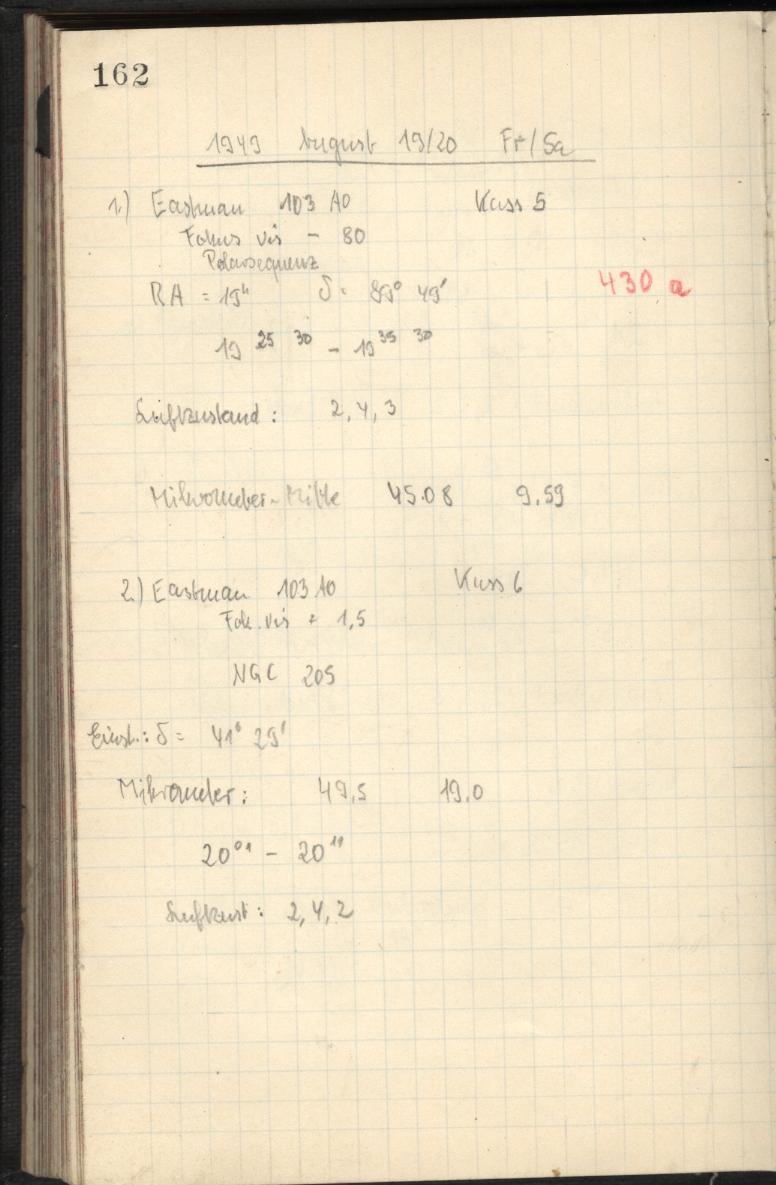 162
1949 August 19/20 Fr/Sa
1.) Eastman 103 AO Kass 5
Fokus vis - 80
Polarsequenz
RA = 19ʰ δ = 89° 49' 430 a
19 25 30 - 19 35 30
Luftzustand : 2, 4, 3
Mikrometer-Mitte 45.08 9.59
2.) Eastman 103 AO Kass 6
Fok. vis + 1,5
NGC 205
Einst.: δ = 41° 29'
Mikrometer : 49,5 19.0
20⁰¹ - 20¹¹
Luftzust : 2, 4, 2